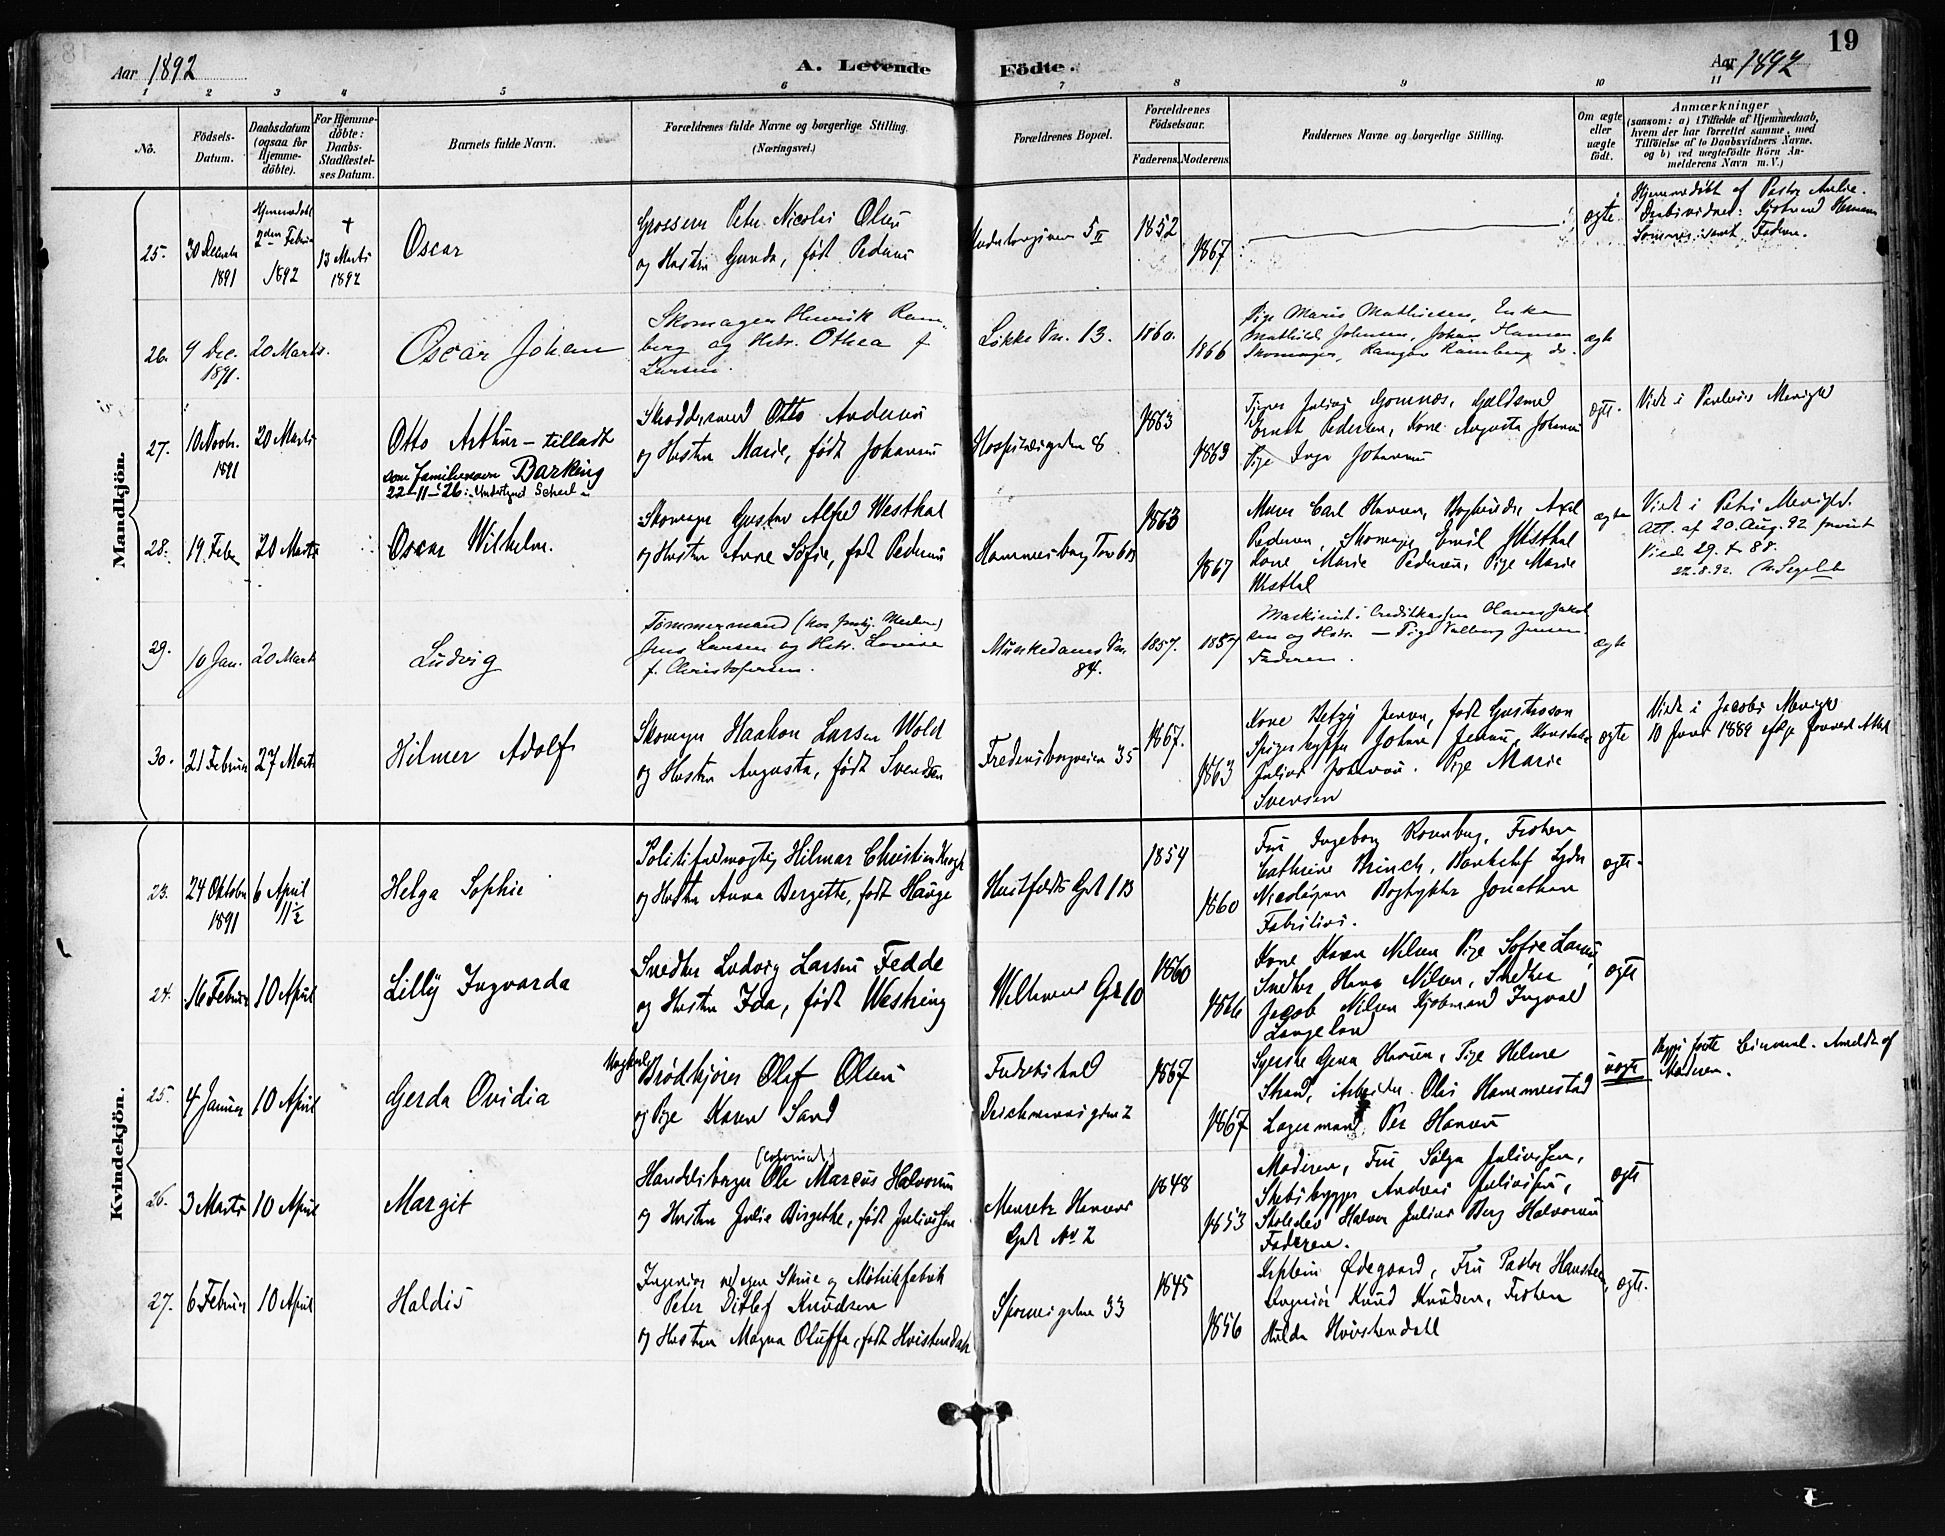 19
Aar 1892
A. Levende Födte.
Aar 1892
1 2 3 4 5 6 7 8 9 10 11
No.
Födsels-
Datum.
Daabsdatum
(ogsaa for
Hjemme-
döbte).
For Hjemme-
döbte:
Daabs-
Stadfæstel-
ses Datum.
Barnets fulde Navn.
Forældrenes fulde Navne og borgerlige Stilling.
(Næringsvei.)
Forældrenes Bopæl.
Forældrenes
Födselsaar.
Faderens. Moderens.
Faddernes Navne og borgerlige Stilling.
Om ægte
eller
uægte
födt.
Anmærkninger
(saasom: a) i Tilfælde af Hjemmedaab,
hvem der har forrettet samme, med
Tilföielse af to Daabsvidners Navne,
og b) ved uægtefödte Börn An-
melderens Navn m. V.)
Mandkjön.
25.
30 Decemb
1891
Hjemmedøbt
2den Februar
1892
+
13 Marts
1892
Oscar
Grosserer Peter Nicolai Olsen
og Hustru Gunda, født Pedersen
5 II
1852
1867
ægte
Hjemmedøbt af Pastor
samt Faderen.
26.
9 Dec.
1891.
20 Marts.
Oscar Johan
Skomager Henrik Ram-
berg og Hstr. Othea f
Larsen.
Løkke Vn. 13.
1860.
1866
Pige Marie Mathiesen, Enke
Mathilde Johnsen, Johan Hansen
Skomager, Ragnar Ramberg do.
ægte
27.
10 Novbr.
1891
20 Marts
Otto Arthur - tilladt
som familienavn Barking
22-11-26:
Otto Andersen
og Hustru Marie, født Johansen
Hospitalsgaden 8
1863
1863
Gomnæs, Guldsmed
Ernst Pedersen, Kone Augusta Johansen
Pige Inga Johansen
ægte
Viet i Paulus Menighed
28.
19 Febr
20 Marts
Oscar Wilhelm.
Skomager Gustav Alfred Westhal
og Hustru Anne Sofie, født Pedersen
Hammersborg Torv 6
1863
1867
Murer Carl Hansen, Bogbinder Axel
Pedersen, Skomager Emil Westhal
Kone Marie Pedersen, Pige Marie
Westhal
ægte
Viet i Petri Menighed.
Att. af 20. Aug. 92
Viet 29. 88.
22.8.92.
29.
10 Jan.
20 Marts
Ludvig
Tømmermand
Jens Larsen og Hstr. Lovise
f. Christofersen.
Munkedams Vn.
84.
1857.
1857
Maskinist i Creditkassen
og Hstr. — Pige Valborg Jensen.
Faderen.
ægte
30.
21 Februar
27 Marts
Hilmer Adolf
Skomager Haakon Larsen Wold
og Hustru Augusta, født Svendsen
Fredensborgveien 35
1867.
1863
Kone Betzy Jensen, født Gustavson
Johan Jensen, Konstabel
Julius Johansen. Pige Marie
Svensen
ægte
Viet i Jacobs Menighed
10 1889 ifølge Attest
Kvindekjön.
23.
24 Oktober
1891
6 April
11½
Helga Sophie
Politifuldmægtig Hilmar Christian Krogh
og Hustru Anna Bergette, født Hauge
Huitfeldts Gd 1 B
1854
1860
Fru Ingeborg Rosenberg, Frøken
Cathrine Brinch, Bankchef
Nicolaysen Bogtrykker Jonathan
Fabritius.
ægte.
24.
16 Februar
10 April
Lilly Ingvarda
Snedker Ludvig Larsen Fedde
og Hustru Ida, født Westring
Welhavens Gd 10
1860
1866
Kone Karen Nilsen Pige Sofie Larsen,
Snedker Hans Nilsen, Snedker
Jacob Nilsen Kjøbmand Ingvald
Langeland
ægte
25.
4 Januar
10 April
Gerda Ovidia
Ungkarl Brødkjører Olaf Olsen
og Pige Karen Sand
Fredrikshald
Deichmansgaden 2
1867
1867
Syerske Gena Hansen, Pige Helene
Strand, Arbeider Ole Hammerstad
Lagermand Per Hansen
uægte
Begges første Leiermaal. Anmeldt af
Moderen.
26.
3 Marts
10 April
Margit
Handelsborger Ole Marcus Halvorsen
og Hustru Julie Birgethe, født Juliussen
Meuretz Hansens
Gade No 2
1848
1853
Moderen, Fru Sølga Juliussen,
Skibsbygger Andreas Juliussen,
Skoleelev Halvor Julius Berg Halvorsen
Faderen.
ægte
27.
6 Februar
10 April
Haldis
Ingeniør ved egen Skrue og Møtrikfabrik
Peter Ditlef Knudsen
og Hustru Magna Oluffa, født Hvistendahl
33
1845
1856
Kaptein Ødegaard, Fru Pastor Hansteen,
Ingeniør Knud Knudsen, Frøken
Hulda Hvistendahl
ægte.